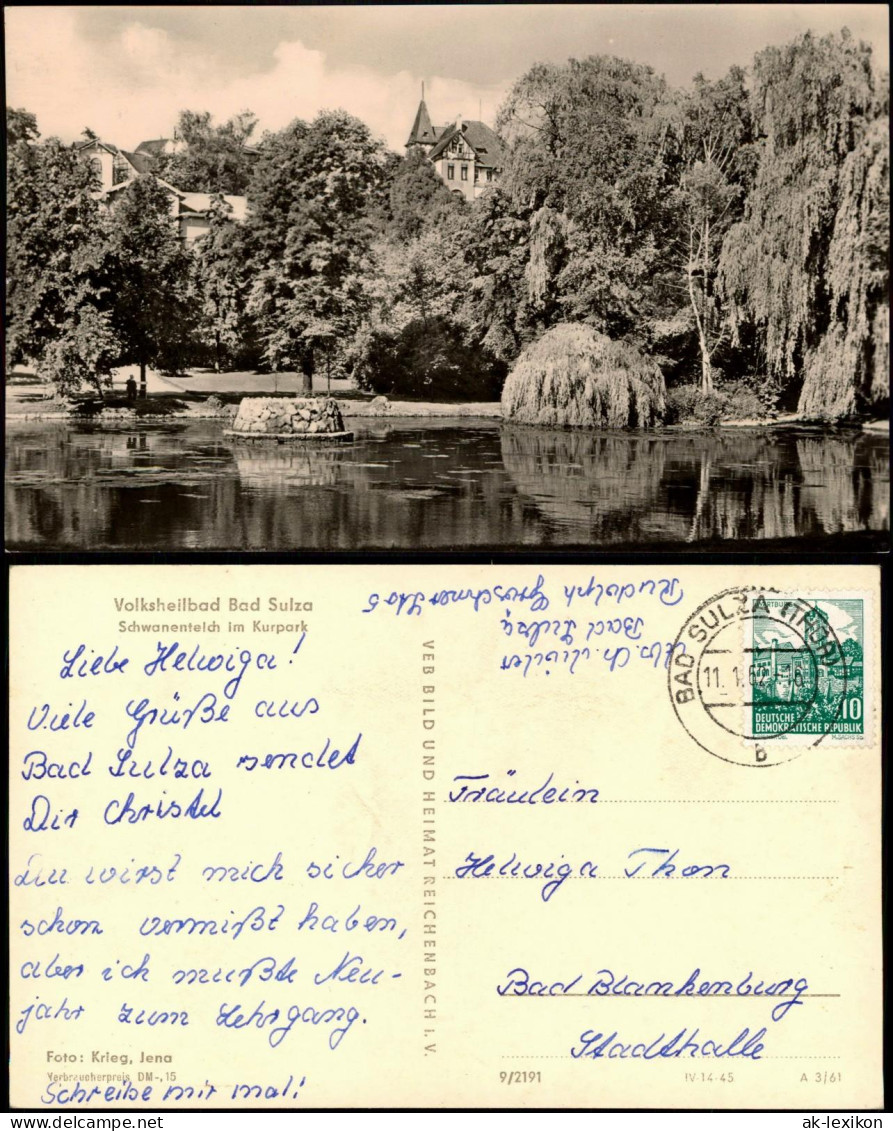 Volksheilbad Bad Sulza
Schwanenteich im Kurpark
Liebe Helwiga!
Viele Grüße aus
Bad Sulza sendet
Dir Christel
Du wirst mich sicher
schon vermißt haben,
aber ich mußte Neu-
jahr zum Lehrgang.
Foto: Krieg, Jena
Verbraucherpreis DM -,15
Schreibe mir mal!
VEB BILD UND HEIMAT REICHENBACH I. V.
Bad Sulza
Rudolph
BAD SULZA (THÜR)
11. 1. 62
b
DEUTSCHE
DEMOKRATISCHE REPUBLIK
10
Fräulein
Helwiga Thon
Bad Blankenburg
Stadthalle
9/2191
IV-14-45
A 3/61
ak-lexikon